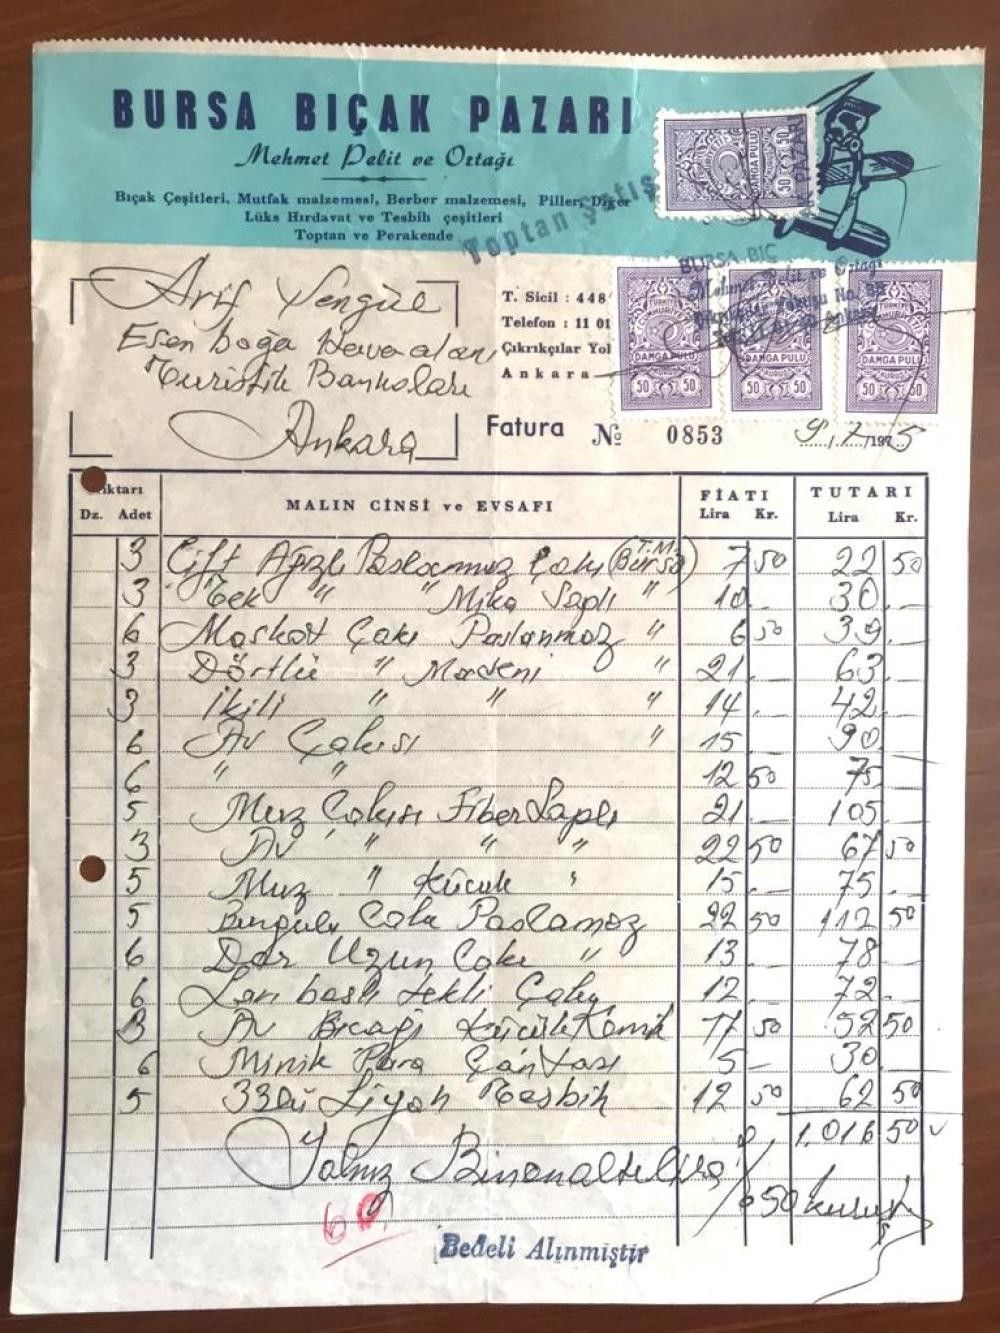 BURSA BIÇAK PAZARI
Mehmet Pelit ve Ortağı
Bıçak Çeşitleri, Mutfak malzemesi, Berber malzemesi, Piller, Diğer
Lüks Hırdavat ve Tesbih çeşitleri
Toptan ve Perakende
Toptan Satış
DAMGA PULU
50 50
BURSA BIÇ
Mehmet Pelit ve Ortağı
Arif Şengül
Esenboğa Havaalanı
Turistik Bankoları
Ankara
T. Sicil : 448
Telefon : 11 01
Çıkrıkçılar Yol
Ankara
TÜRKİYE CUMHURİYETİ DAMGA PULU 50 50
DAMGA PULU 50 50
DAMGA PULU 50 50
Fatura № 0853 9/7/1975
Miktarı MALIN CİNSİ ve EVSAFI FİATI TUTARI
Dz. Adet Lira Kr. Lira Kr.
3 Çift Ağızlı Paslamnoz Çakı (T.M. Bursa) 7 50 22 50
3 Tek " " Mika Saplı " 10 - 30 -
6 Maskot Çakı Paslanmoz " 6 50 39 -
3 Dörtlü " Madeni " 21 - 63 -
3 İkili " " " 14 - 42 -
6 Av Çakısı " 15 - 90 -
6 " " 12 50 75 -
5 Muz Çakısı Fiber Saplı 21 - 105 -
3 Av " " " 22 50 67 50
5 Muz " Küçük " 15 - 75 -
5 Çakı Paslamoz 22 50 112 50
6 Dar Uzun Çakı " 13 - 78 -
6 başlı tekli Çakı 12 - 72 -
3 Av Bıcağı Küçük Kemik 17 50 52 50
6 Minik Para Çantası 5 - 30 -
5 33lü Siyah Tesbih 12 50 62 50
1.016 50
Yalnız Binonaltılira
50 kuruştur
60
Bedeli Alınmıştır